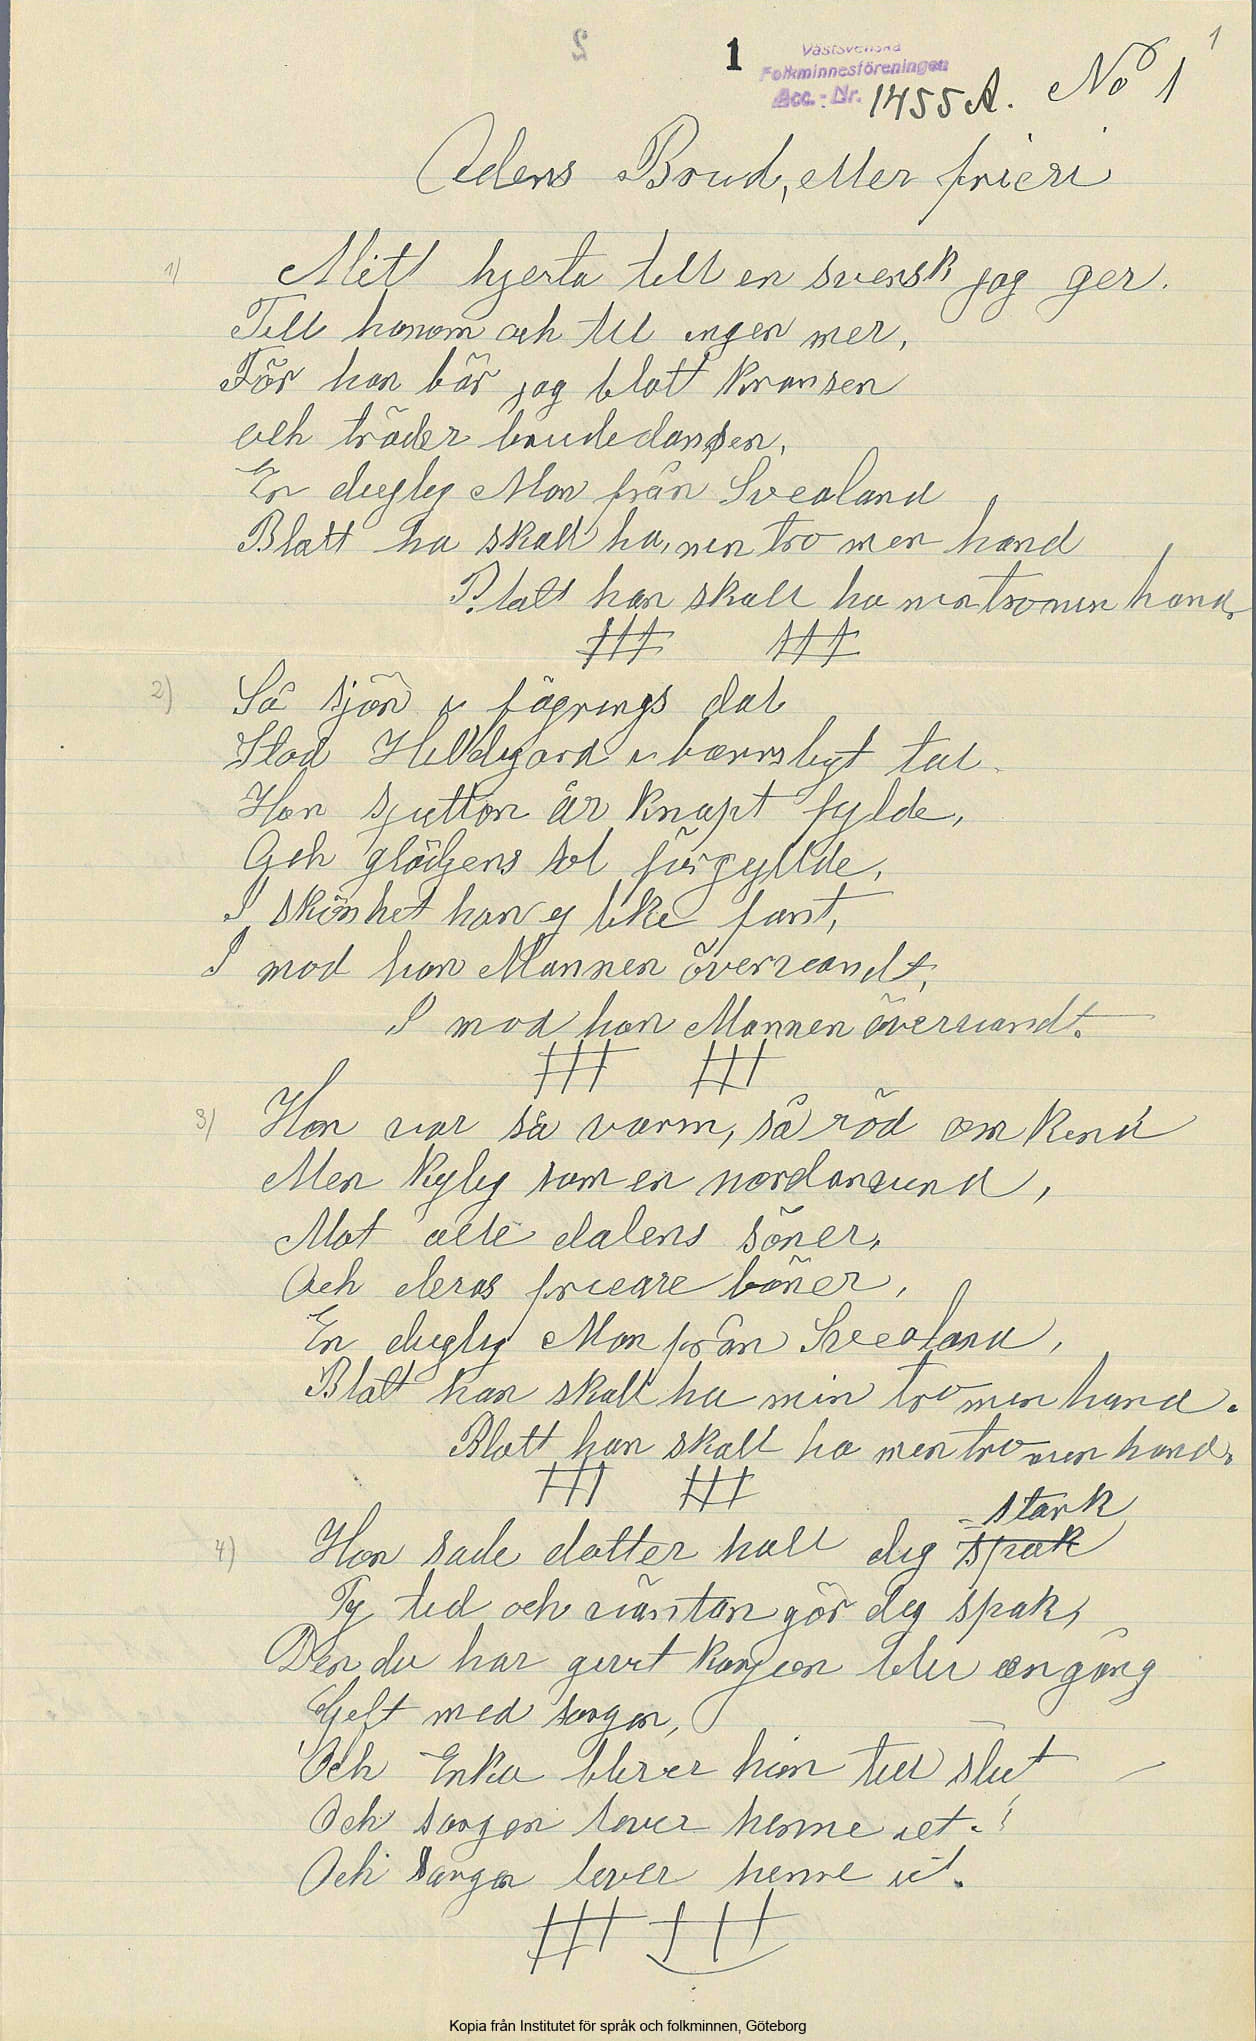 1
1
Västsvenska
Folkminnesföreningen
Acc.-Nr. 1455 A. No 1
Adens Brud, eller frieri
1) Mitt hjerta till en svensk jag ger.
Till honom och til ingen mer,
För han bär jag blott kransen
och träder brudedansen,
En duglig Man från Svealand
Blott ha skall ha, min tro min hand
Blott han skall ha min tro min hand.
2) Så sjön i fägrings dal
Stod Hildegard i barnsligt tal
Hon sjutton år knapt fylde,
Och glädjens sol förgyllde,
I skönhet hon ej like fant,
I mod hon Mannen överrandt,
I mod hon Mannen överrandt.
3) Hon var så varm, så röd om kind
Men kylig som en nordanvind,
Mot alle dalens söner,
Och deras frieare böner,
En duglig Man från Svealand,
Blott han skall ha min tro min hand.
Blott han skall ha min tro min hand.
stark
4) Hon sade dotter hall dig spak
Ty tid och väntan gör dig spak,
Den du har givit korgen blir en gång
Gift med sorgen,
Och Enka bliver hion till slut
Och sorgen lever henne ut.
Och sorgen lever henne ut.
Kopia från Institutet för språk och folkminnen, Göteborg